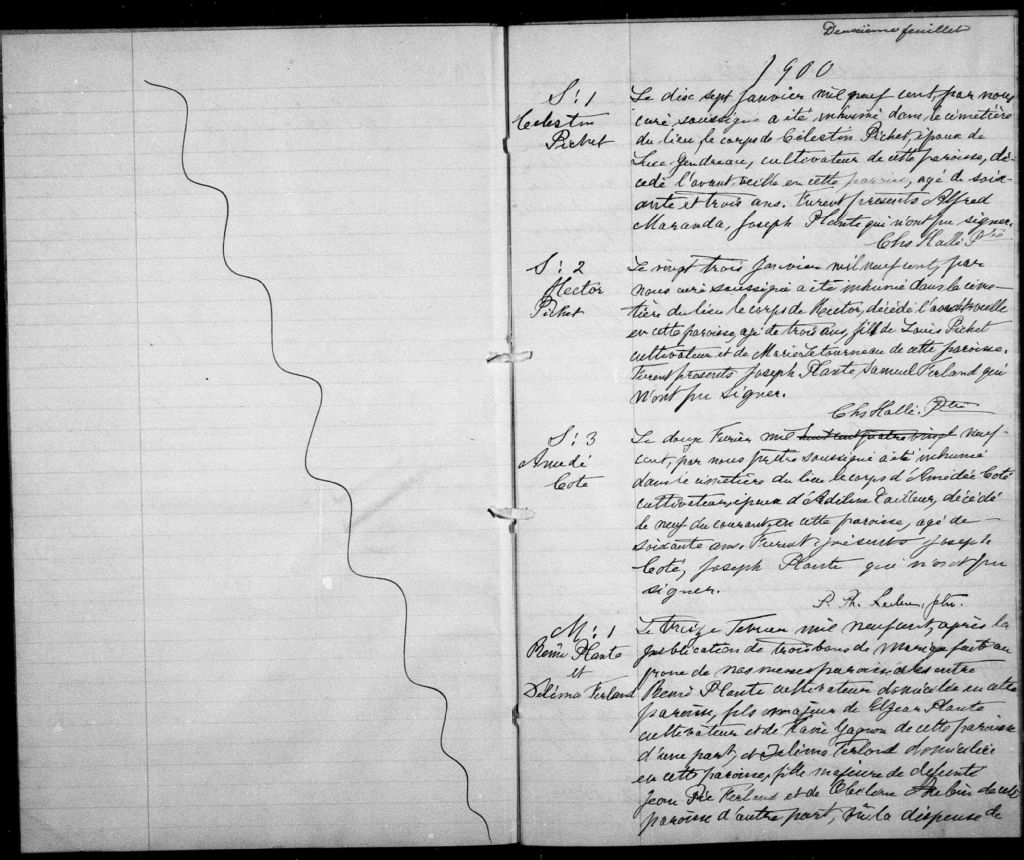 Deuxième feuillet
1900
S: 1
Célestin
Pichet
Le disc sept Janvier mil neuf cent, par nous
curé soussigné a été inhumé dans le cimetière
du lieu, le corps de Célestin Pichet, époux de
Luce Gendreau, cultivateur de cette paroisse, dé-
cédé l'avant veille en cette paroisse, agé de soix-
ante et trois ans. Furent présents Alfred
Maranda, Joseph Plante qui n'ont pu signer.
Chs Hallé Ptre
S: 2
Hector
Pichet
Le vingt trois Janvier mil neuf cent, par
nous curé soussigné a été inhumé dans le cime-
tière du lieu le corps de Hector, décédé l'avant veille
en cette paroisse, agé de trois ans, fils de Louis Pichet
cultivateur et de Marie Letourneau de cette paroisse.
Furent présents Joseph Plante, Samuel Ferland qui
n'ont pu signer.
Chs Hallé. Ptre
S: 3
Amedé
Coté
Le douze Fevrier mil huit cent quatre vingt neuf
cent, par nous prêtre soussigné a été inhumé
dans le cimetière du lieu le corps d'Amédée Coté
cultivateur, époux d'Adiline Tailleur, décédé
le neuf du courant, en cette paroisse, agé de
soixante ans. Furent présents Joseph
Coté, Joseph Plante qui n'ont pu
signer.
P. Ph. ptre.
M: 1
Remi Plante
et
Delima Ferland
Le treize Fevrier mil neuf cent, après la
publication de trois bans de mariage fait au
prone de nos messes paroissiales entre
Remi Plante cultivateur domicilié en cette
paroisse, fils majeur de Elzear Plante
cultivateur et de Marie Gagnon de cette paroisse
d'une part, et Delima Ferland domiciliée
en cette paroisse, fille majeure de defunte
Jean Pie Ferland et de Aubin de cette
paroisse d'autre part, vû la dispense de